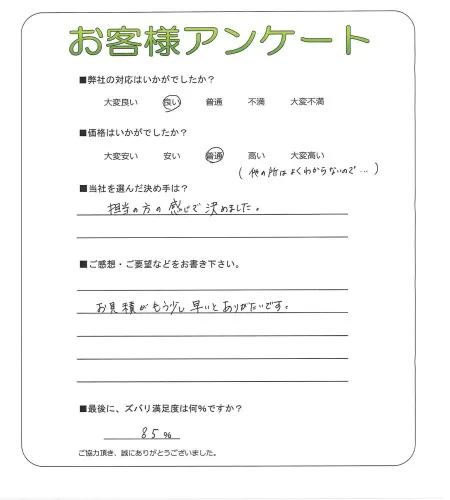 お客様アンケート
■弊社の対応はいかがでしたか？
大変良い 良い 普通 不満 大変不満
■価格はいかがでしたか？
大変安い 安い 普通 高い 大変高い
(他の所はよくわからないので…)
■当社を選んだ決め手は？
担当の方の感じで決めました。
■ご感想・ご要望などをお書き下さい。
お見積がもう少し早いとありがたいです。
■最後に、ズバリ満足度は何%ですか？
85%
ご協力頂き、誠にありがとうございました。